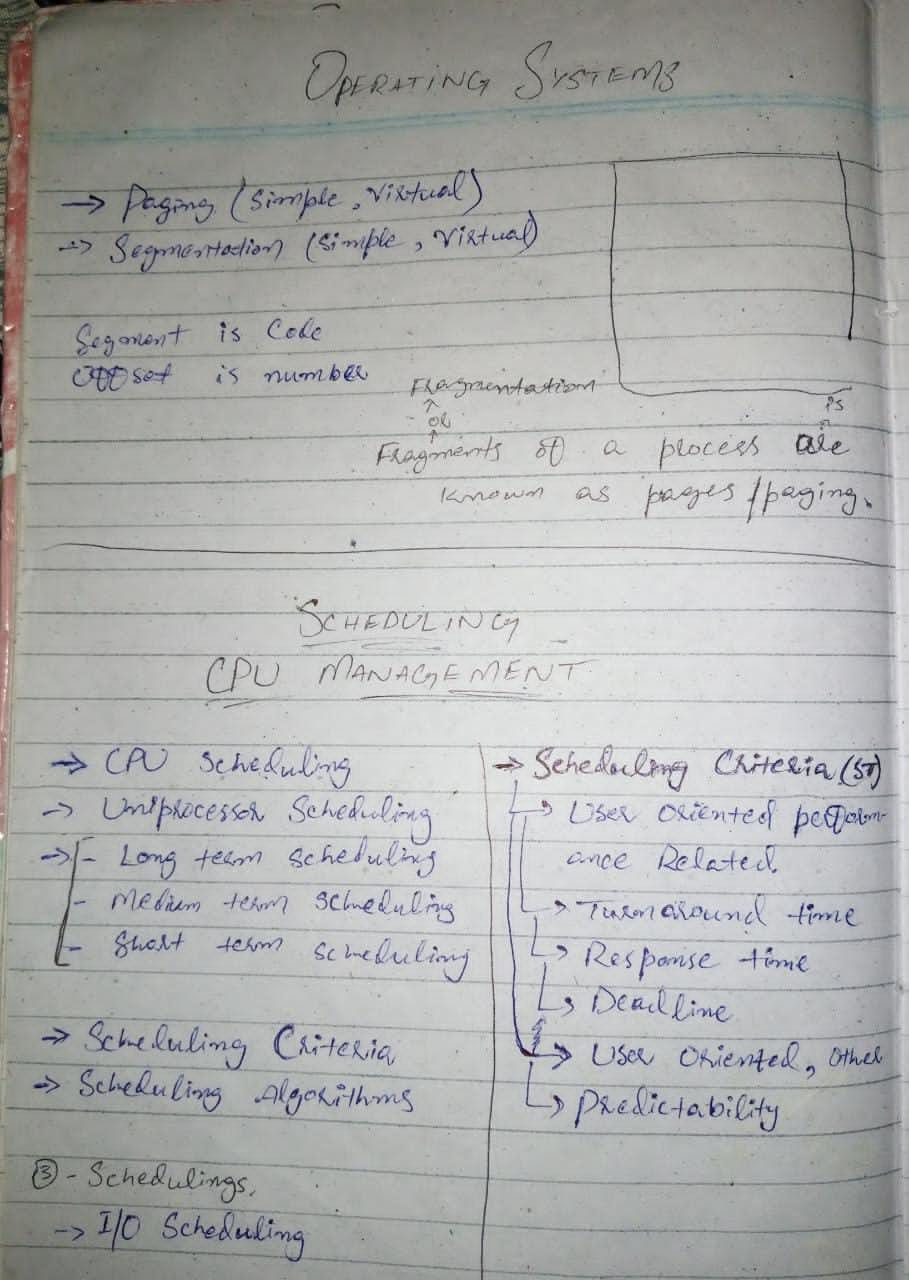 OPERATING SYSTEMS
→ Paging (Simple, Virtual)
→ Segmentation (Simple, Virtual)
Segment is Code
Offset is number
Fragmentation
↑
or
↑
is
↑
Fragments of a process are
known as pages/paging.
SCHEDULING
CPU MANAGEMENT
→ CPU Scheduling
→ Uniprocessor Scheduling
→ - Long term scheduling
- Medium term scheduling
- Short term scheduling
→ Scheduling Criteria
→ Scheduling Algorithms
③ - Schedulings.
→ I/O Scheduling
→ Scheduling Criteria (ST)
→ User Oriented perform-
ance Related
→ Turnaround time
→ Response time
→ Deadline
→ User Oriented, other
→ Predictability